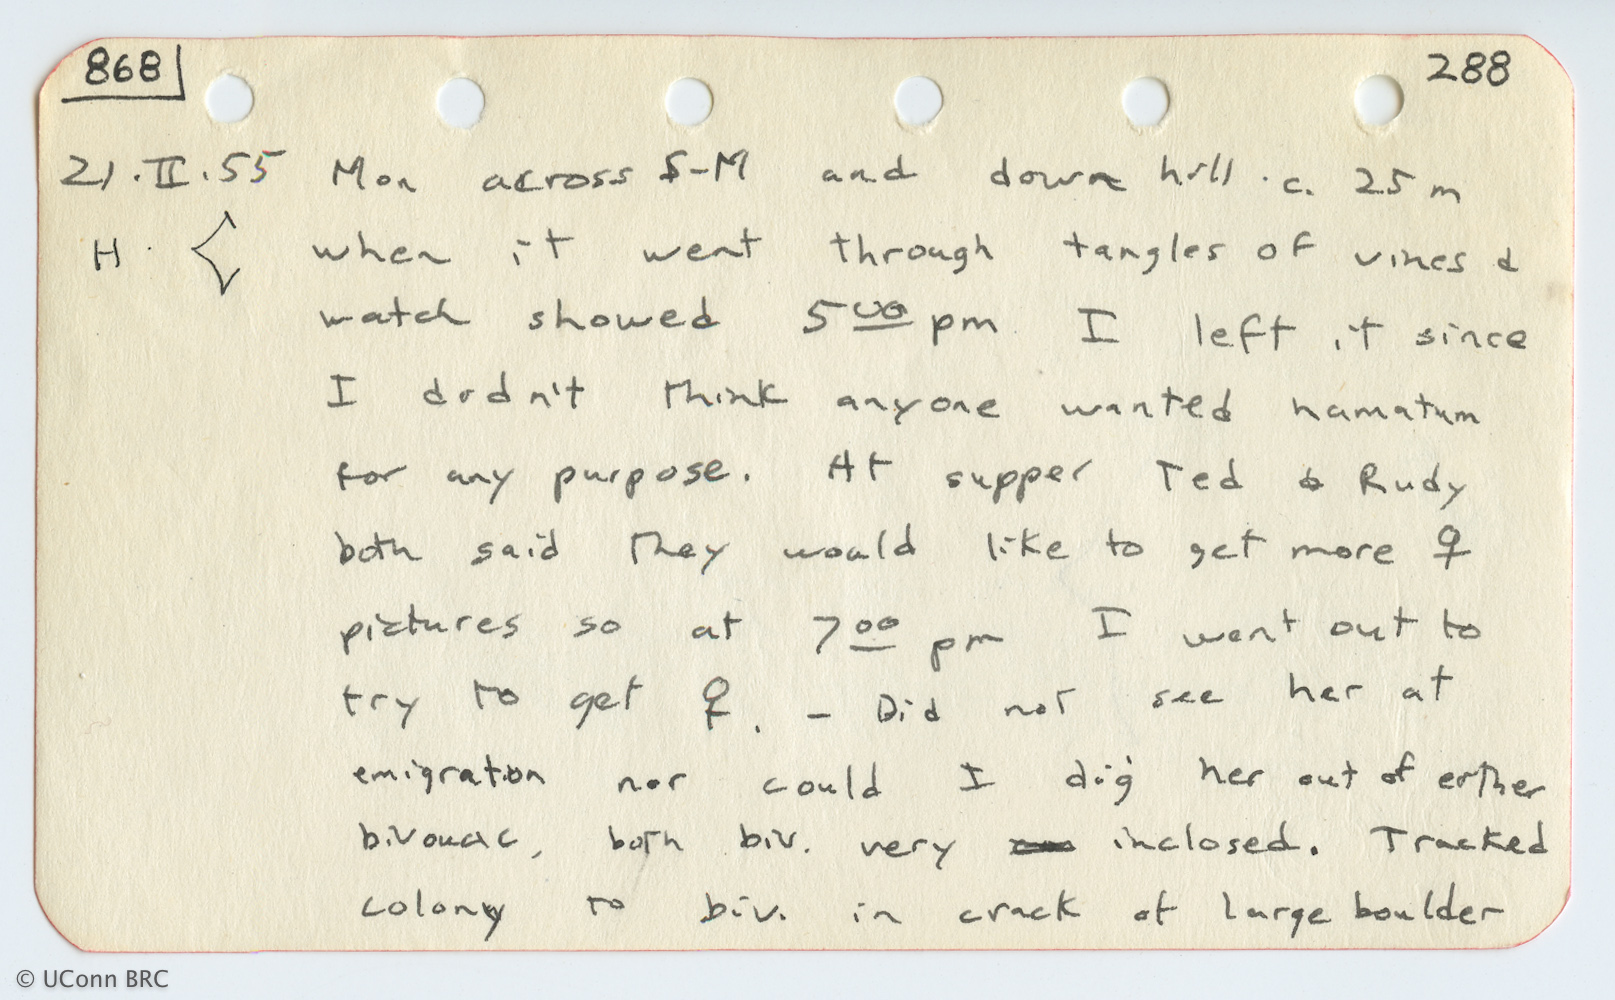 868 288
21.II.55 Mon across S-M and down hill. c. 25 m
H. < when it went through tangles of vines &
watch showed 5 00 pm I left it since
I didn't think anyone wanted hamatum
for any purpose. At supper Ted & Rudy
both said they would like to get more ♀
pictures so at 7 00 pm I went out to
try to get ♀. - Did not see her at
emigration nor could I dig her out of either
bivouac, both biv. very inclosed. Tracked
colony to biv. in crack of large boulder
© UConn BRC